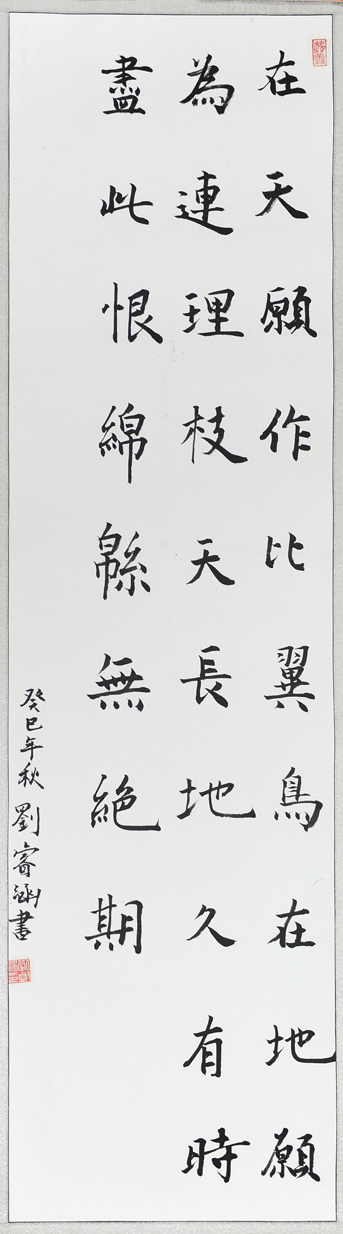 在天願作比翼鳥在地願
為連理枝天長地久有時
盡此恨綿緜無絕期
癸巳年秋劉睿涵書